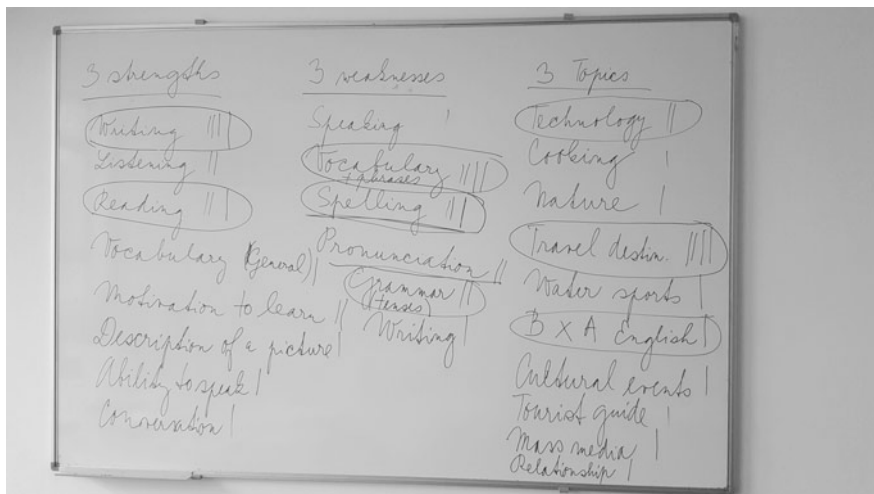 3 strengths
Writing ||||
Listening ||
Reading |||
Vocabulary (General) |
Motivation to learn ||
Description of a picture |
Ability to speak |
Conversation |
3 weaknesses
Speaking |
Vocabulary ||||
+ phrases
Spelling |||
Pronunciation ||
Grammar ||
(tenses)
Writing |
3 Topics
Technology ||
Cooking |
Nature |
Travel destin. ||||
Water sports |
B X A English |
Cultural events |
Tourist guide |
Mass media |
Relationship |